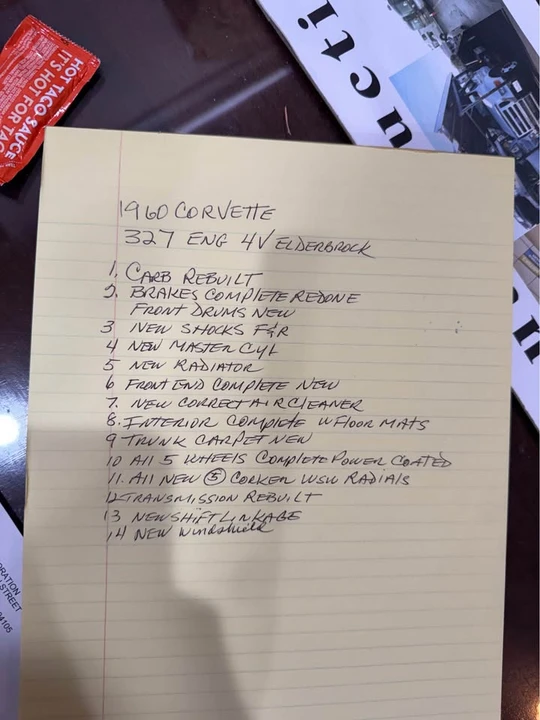 HOT TACO SAUCE
IT'S HOT FOR TAC
ucti
1960 CORVETTE
327 ENG 4V ELDERBROCK
1. CARB REBUILT
2. BRAKES COMPLETE REDONE
FRONT DRUMS NEW
3 NEW SHOCKS F&R
4 NEW MASTER CYL
5 NEW RADIATOR
6 FRONT END COMPLETE NEW
7. NEW CORRECT AIR CLEANER
8. INTERIOR COMPLETE W FLOOR MATS
9 TRUNK CARPET NEW
10 All 5 WHEELS COMPLETE POWER COATED
11. All NEW 5 CORKER WSW RADIALS
12 TRANSMISSION REBUILT
13 NEW SHIFT LINKAGE
14 NEW Windshield
RATION
STREET
94105